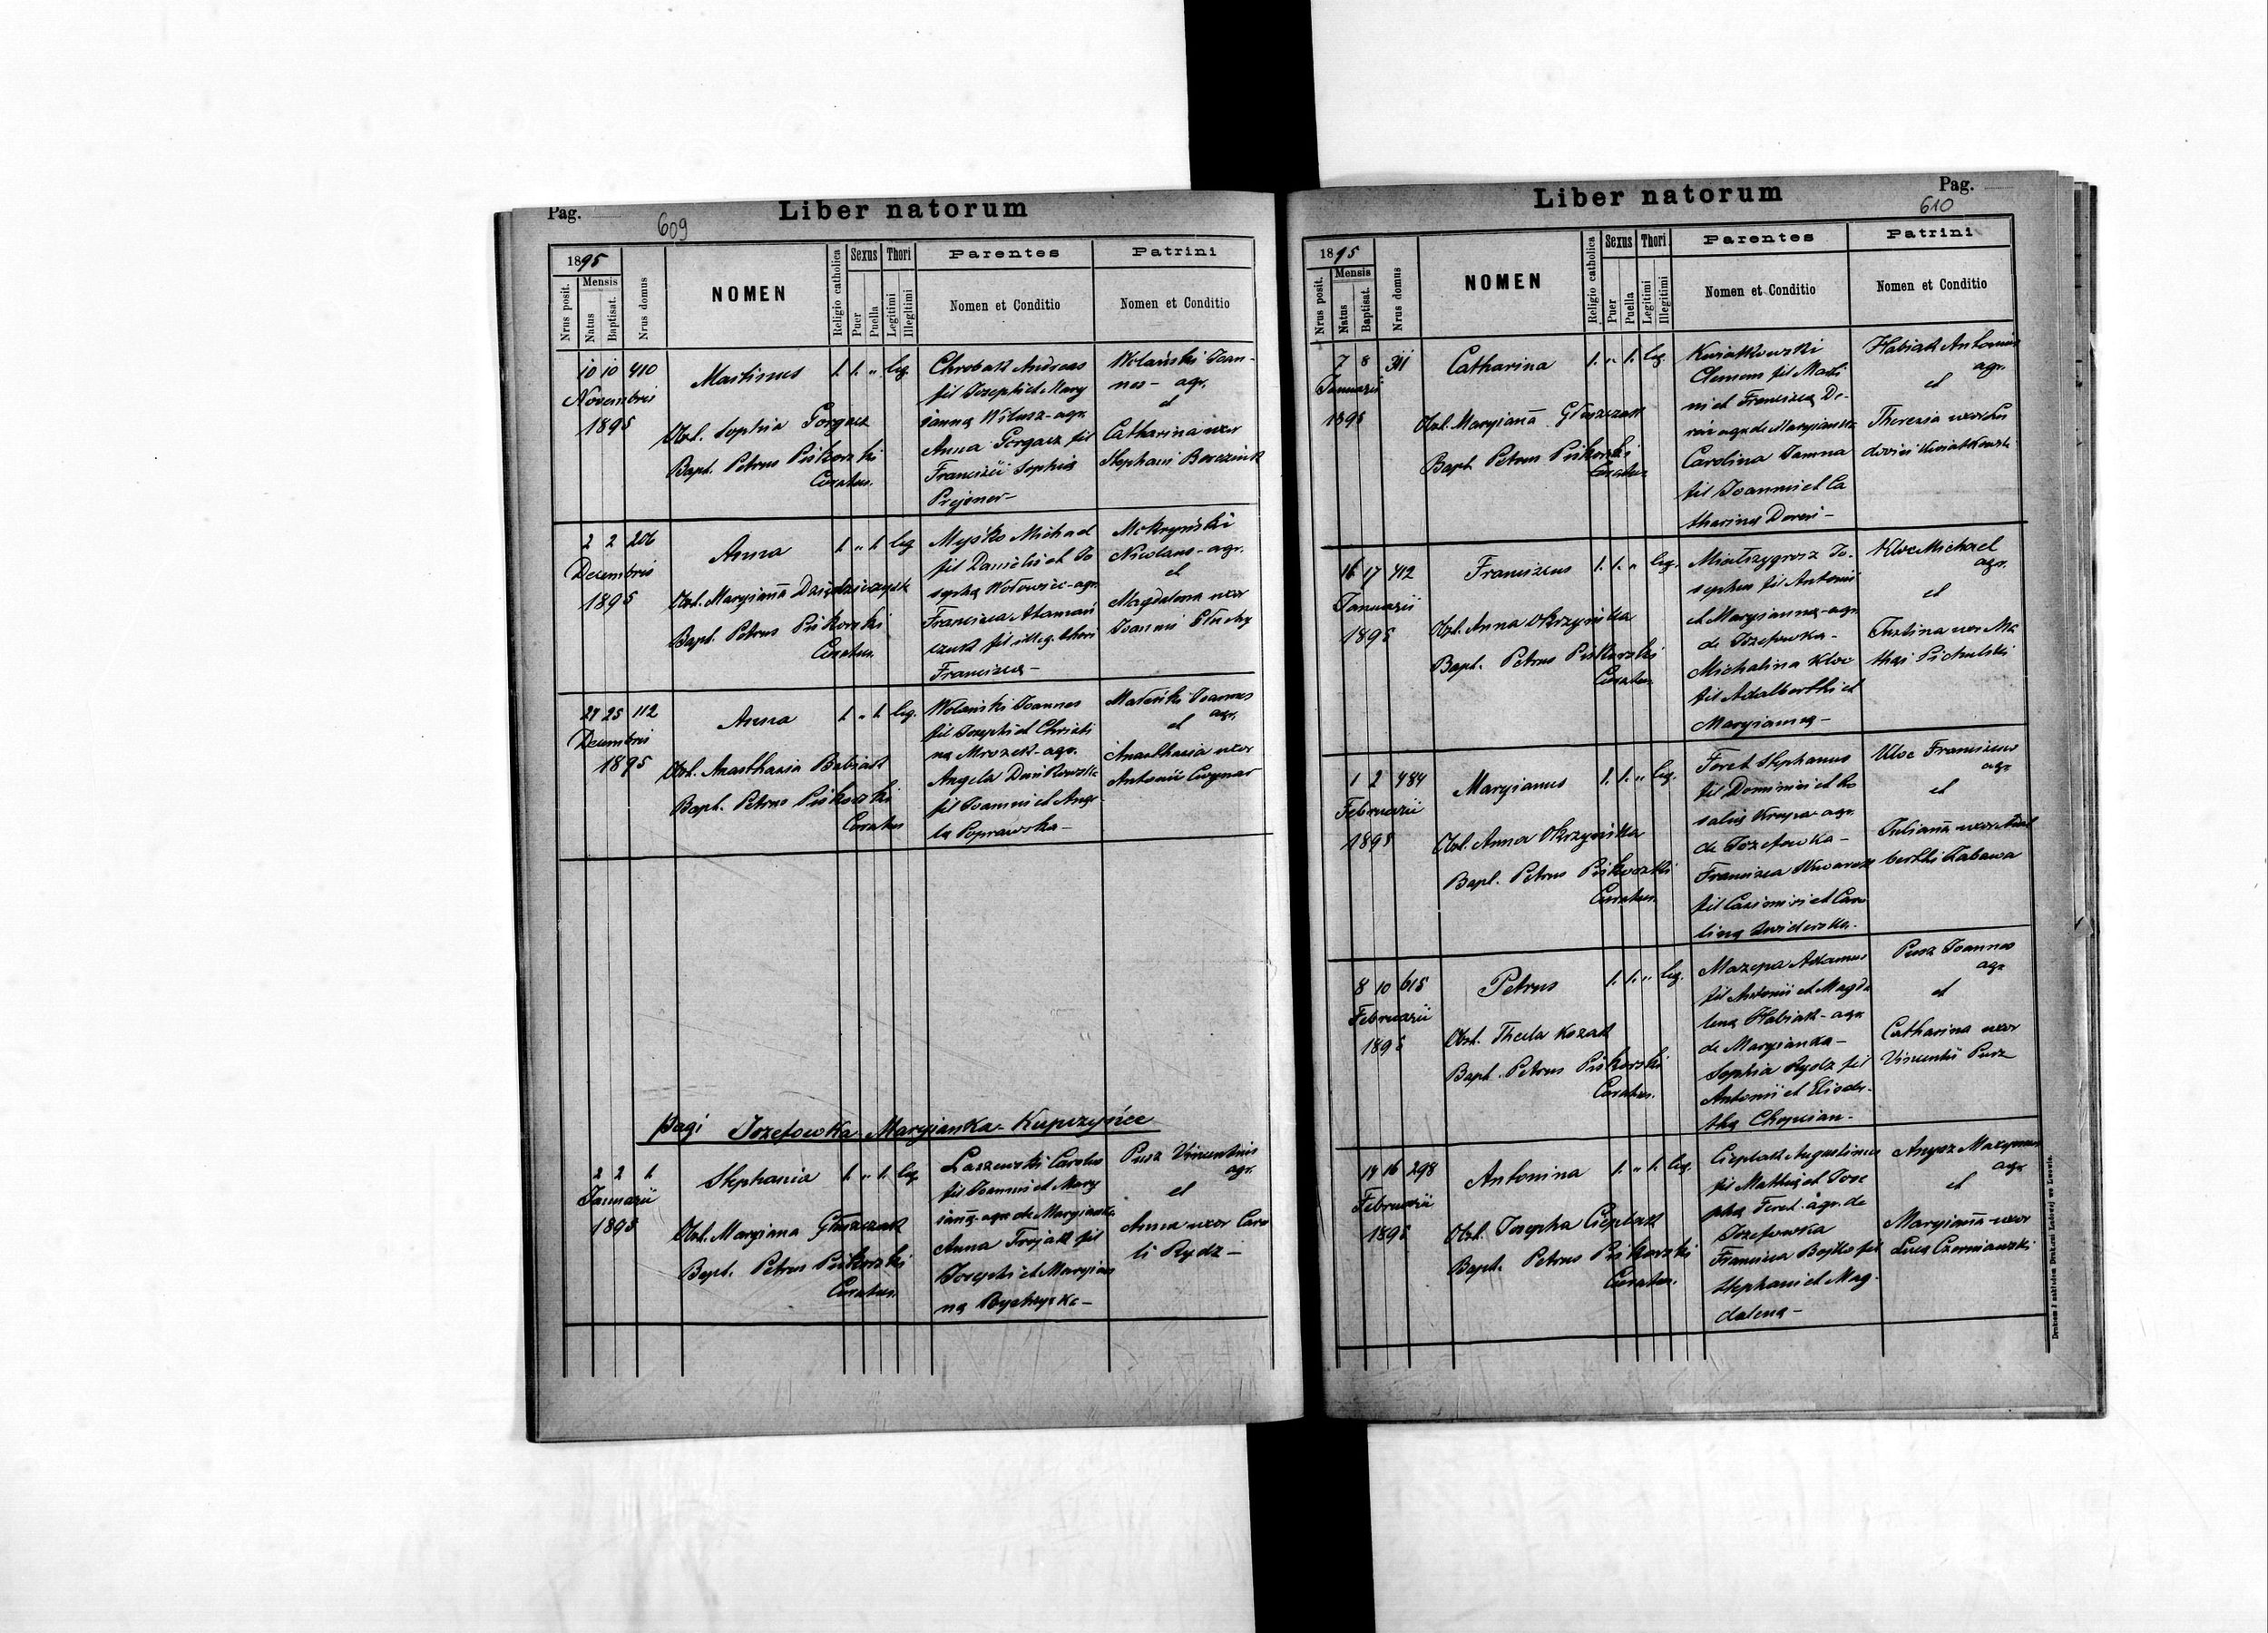 Pag.
609
Liber natorum
1895
Nrus posit.
Mensis
Natus
Baptisat.
Nrus domus
NOMEN
Religio catholica
Sexus
Puer
Puella
Thori
Legitimi
Illegitimi
Parentes
Nomen et Conditio
Patrini
Nomen et Conditio
10 10 410
Novembris
1895
Martinus
1. 1. „ leg.
Obst. Sophia Gorgacz
Bapt. Petrus Piskorski
Curatus.
Chrobak Andreas
fil Josephi et Mary
ianna Witusz - agr.
Anna Gorgacz fil
Francisci Sophia
Prejsner -
Wolański Joan-
nes - agr.
et
Catharina uxor
Stephani
2 2 206
Decembris
1895
Anna
1 „ 1 leg
Obst. Maryianna
Bapt. Petrus Piskorski
Curatus.
Myśko Michael
fil Danielis et Jo
sepha Wołowiec - agr.
Francisca Ataman
czuk fil illeg. thori
Francisca -
Mokrzyński
Nicolaus - agr.
et
Magdalena uxor
Joannis
24 25 112
Decembris
1895
Anna
1 „ 1 leg.
Obst. Anasthasia Babiak
Bapt. Petrus Piskorski
Curatus
Wolański Joannes
fil Josephi et Christi
na Mrozek - agr.
Angela
fil Joannis et Ange
la Poprawska -
Joannes
agr.
et
Anasthasia uxor
Antonii Cwynar
Pagi Jozefowka - Maryianka - Kupczyńce
2 2 1
Januarii
1895
Stephania
1. „ 1. leg
Obst. Maryiana Głuszczak
Bapt. Petrus Piskorski
Curatus.
Laszewski Carolus
fil Joannis et Mary
ianna. agr. de Maryianka
Anna Trojak fil
Josephi et Maryian
na
Pusz Vincentius
agr.
et
Anna uxor Caro
li Rydz -
Liber natorum
Pag.
610
1895
Nrus posit.
Mensis
Natus
Baptisat.
Nrus domus
NOMEN
Religio catholica
Sexus
Puer
Puella
Thori
Legitimi
Illegitimi
Parentes
Nomen et Conditio
Patrini
Nomen et Conditio
7 8 311
Januarii
1895
Catharina
1. „ 1. leg.
Obst. Maryianna Głuszczak
Bapt Petrus Piskorski
Curatus
Kwiatkowski
Clemens fil Marti
ni et Francisca De-
reń agr. de Maryianka
Carolina Jamna
fil Joannis et Ca
tharina Dereń -
Habiak Antonius
agr.
et
Theresia uxor Lu
dovici Kwiatkowski
16 17 412
Januarii
1895
Franciscus
1. 1. „ leg.
Obst. Anna Okrzyńska
Bapt. Petrus Piskorski
Curatus
Jo-
sephus fil Antonii
et Maryianna - agr.
de Jozefowka -
Michalina Kloc
fil Adalberthi et
Maryianna -
Kloc Michael
agr.
et
Justina uxor Ma
thei Pichulski
1 2 484
Februarii
1895
Maryianus
1. 1. „ leg.
Obst. Anna Okrzyńska
Bapt. Petrus Piskorski
Curatus.
Feret Stephanus
fil Dominici et Ro
salia Krupa agr.
de Jozefowka -
Francisca
fil Casimiri et Caro
lina Świderska.
Kloc Franciscus
agr
et
Julianna uxor Adal
berthi Kabawa
8 10 615
Februarii
1895
Petrus
1. 1. „ leg.
Obst. Thecla Kozak
Bapt. Petrus Piskorski
Curatus.
Mazepa Adamus
fil Antonii et Magda
lena Habiak - agr
de Maryianka -
Sophia Rydz fil
Antonii et Elisabe-
tha Chopcian -
Pusz Joannes
agr
et
Catharina uxor
Vincentii Pusz
14 16 298
Februarii
1895
Antonina
1. „ 1. leg.
Obst. Josepha Cieplak
Bapt. Petrus Piskorski
Curatus.
Cieplak Augustinus
fil Mathia et Jose
pha Feret. agr. de
Jozefowka
Francisca Bojko fil
Stephani et Mag-
dalena -
agr
et
Maryianna - uxor
Luca Czerniawski
Drukiem i nakładem Drukarni Ludowej we Lwowie.